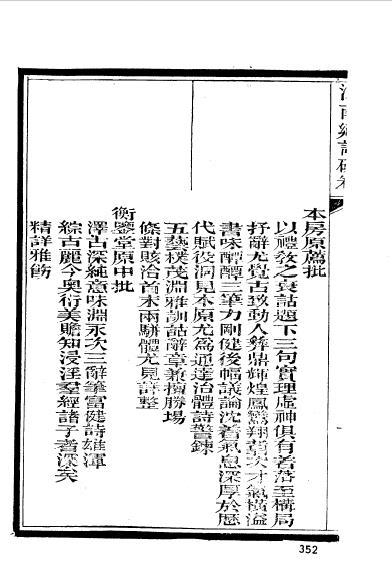 江南鄉試硃卷
本房原薦批
以禮教之衰詰題下三句實理虛神俱有著落至構局
抒辭尤覺古致動人彝鼎輝煌鳳鸞翔翥次才氣橫溢
書味醰醰三筆力剛健後幅議論沈著氣息深厚於歷
代賦役洞見本原尤為通達治體詩警鍊
五藝樸茂淵雅訓詁辭章兼擅勝場
條對賅洽首末兩駢體尤見詳整
衡鑒堂原申批
澤古深純意味淵永次三辭筆富健詩雄渾
綜古麗今奧衍美贍知浸淫羣經諸子者深矣
精詳雅飭
352